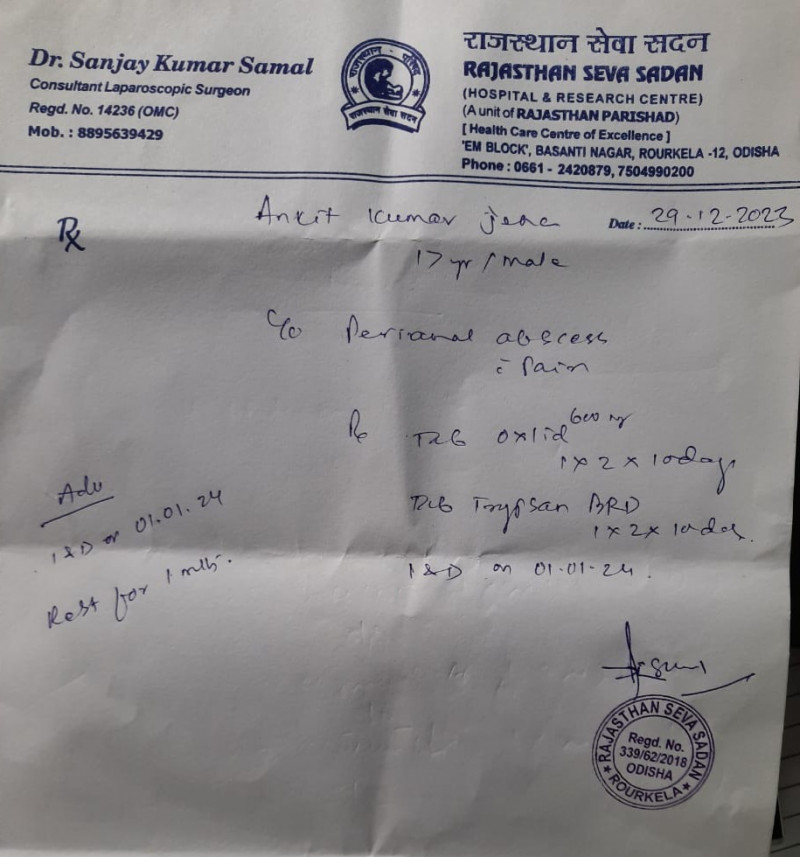 Dr. Sanjay Kumar Samal
Consultant Laparoscopic Surgeon
Regd. No. 14236 (OMC)
Mob. : 8895639429
राजस्थान परिषद
राजस्थान सेवा सदन
राजस्थान सेवा सदन
RAJASTHAN SEVA SADAN
(HOSPITAL & RESEARCH CENTRE)
(A unit of RAJASTHAN PARISHAD)
[ Health Care Centre of Excellence ]
'EM BLOCK', BASANTI NAGAR, ROURKELA -12, ODISHA
Phone : 0661 - 2420879, 7504990200
Rx
Ankit Kumar Jena
Date : 29-12-2023
17 yr / male
C/o Perianal abscess
c̄ Pain
Rx Tab Oxlid 600 mg
1 x 2 x 10 days
Tab Trypsan BRD
1 x 2 x 10 days.
I & D on 01-01-24.
Adv
I & D on 01.01.24
Rest for 1 mth.
RAJASTHAN SEVA SADAN
Regd. No.
339/62/2018
ODISHA
ROURKELA